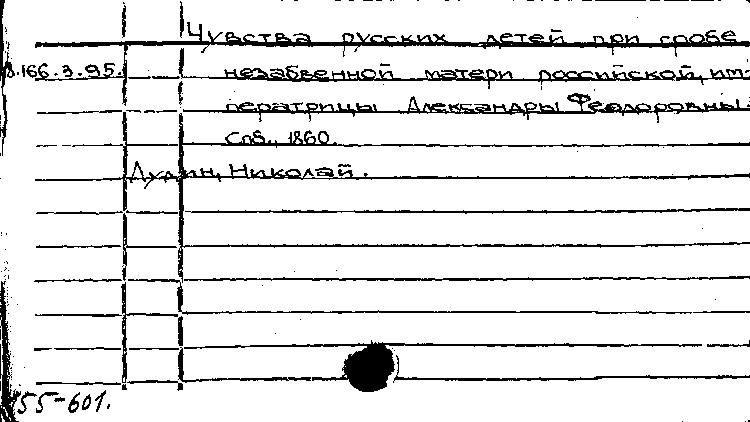 Чувства русских детей при гробе
8.166.3.95. незабвенной матери российской, им-
ператрицы Александры Феодоровны.
Спб., 1860.
Лудин, Николай.
155-601.